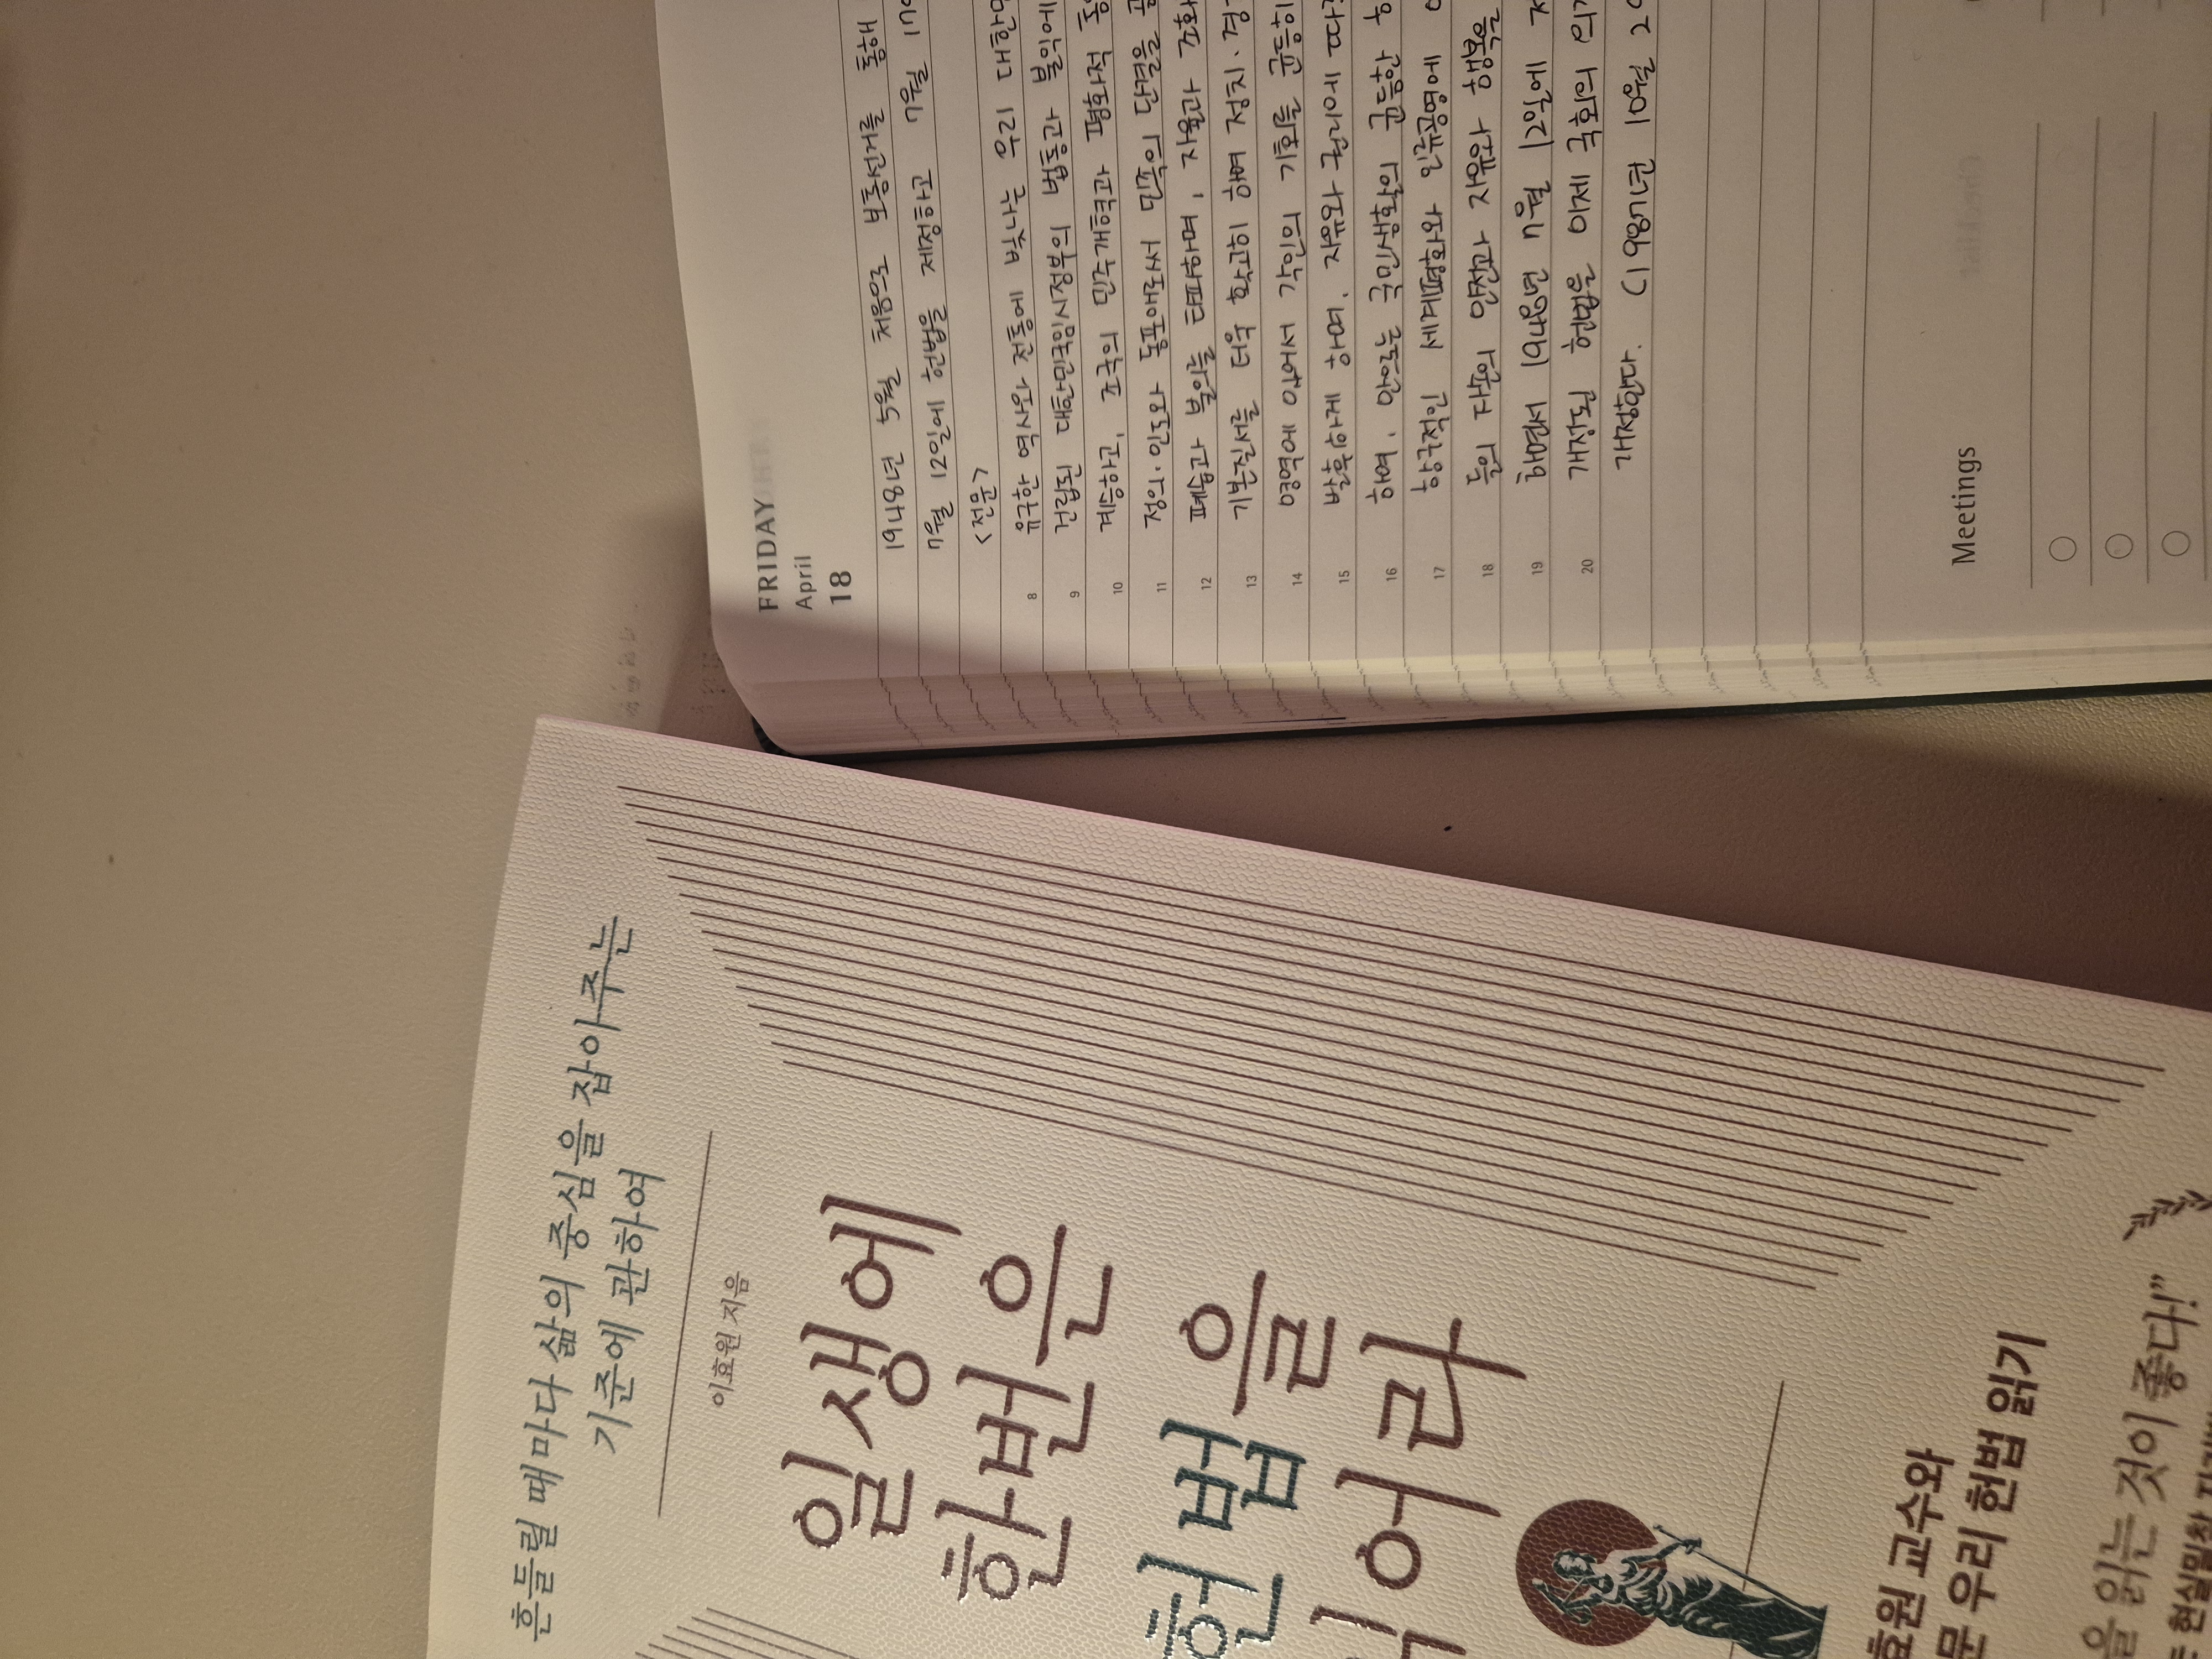 FRIDAY
April
18
1948년 5월 처음으로 보통선거를 통해
7월 12일에 헌법을 제정하고 7월 17
<전문>
8 유구한 역사와 전통에 빛나는 우리 대한민
9 건립된 대한민국임시정부의 법통과 불의에
10 계승하고, 조국의 민주개혁과 평화적 통
11 정의·인도와 동포애로써 민족의 단결을
12 폐습과 불의를 타파하며, 자율과 조화
13 기본질서를 더욱 확고히 하여 정치·경
14 영역에 있어서 각인의 기회를 균등히
15 발휘하게 하며, 자유와 권리에 따
16 하여, 안으로는 국민생활의 균등한
17 항구적인 세계평화와 인류공영에
18 들의 자손의 안전과 자유와 행복
19 하면서 1948년 7월 12일에
20 개정된 헌법을 이제 국회의
개정한다. (1987년 10월 2
Meetings
흔들릴 때마다 삶의 중심을 잡아주는
기준에 관하여
이효원 지음
일생에
한번은
헌법을
읽어라
효원 교수와
문 우리 헌법 읽기
을 읽는 것이 좋다!”